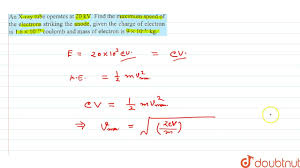 An X-ray tube operates at 20 kV. Find the maximum speed of
the electrons striking the anode, given the charge of electron
is 1.6 × 10⁻¹⁹ coulomb and mass of electron is 9 × 10⁻³¹ kg.
E = 20×10³ eV. = eV.
K.E. = ½ m v²max
eV = ½ m v²max
⇒ Vmax = √(2eV/m)